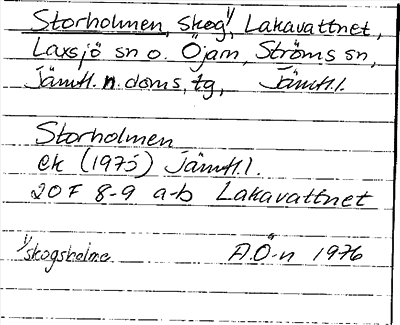 Storholmen, skog¹⁾, Lakavattnet,
Laxsjö sn o. Öjarn, Ströms sn,
Jämtl. n. doms. tg, Jämtl. l.
Storholmen
ek (1975) Jämtl. l.
20 F 8-9 a-b Lakavattnet
¹⁾skogsholme A.Ö-n 1976